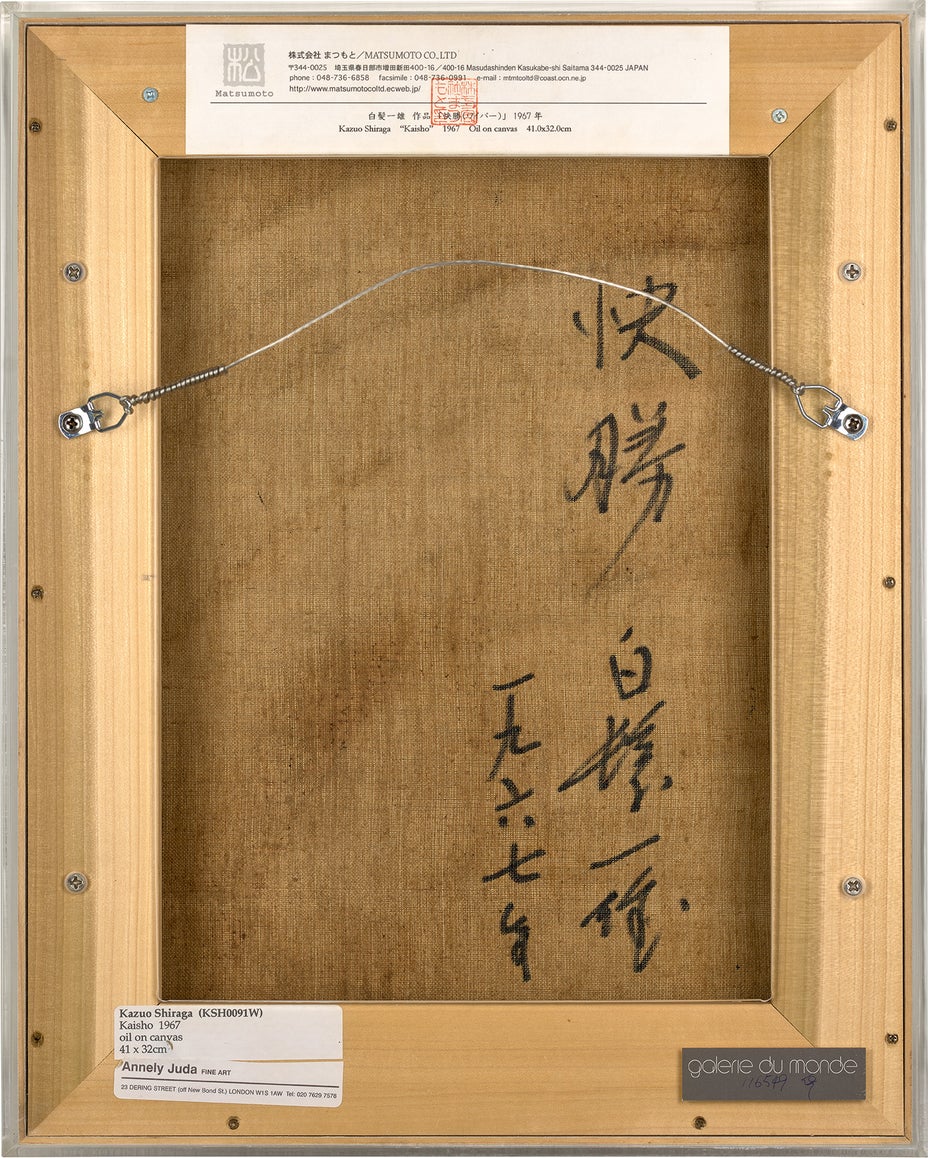 松
Matsumoto
株式会社 まつもと／MATSUMOTO CO.,LTD
〒344-0025 埼玉県春日部市増田新田400-16／400-16 Masudashinden Kasukabe-shi Saitama 344-0025 JAPAN
phone : 048-736-6858 facsimile : 048-736-0991 e-mail : mtmtcoltd@coast.ocn.ne.jp
http://www.matsumotocoltd.ecweb.jp/
白髪一雄 作品 「快勝(ワイパー)」 1967 年
Kazuo Shiraga "Kaisho" 1967 Oil on canvas 41.0x32.0cm
快勝
白髪一雄
一九六七年
Kazuo Shiraga (KSH0091W)
Kaisho 1967
oil on canvas
41 x 32cm
Annely Juda FINE ART
23 DERING STREET (off New Bond St.) LONDON W1S 1AW Tel: 020 7629 7578
galerie du monde